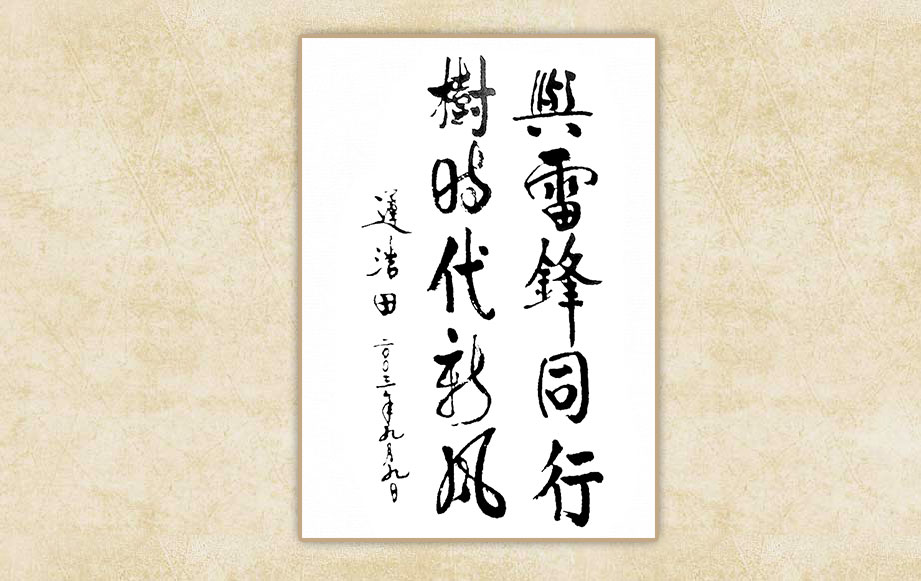 與雷鋒同行
樹時代新風
蓮浩田 二〇〇三年九月九日